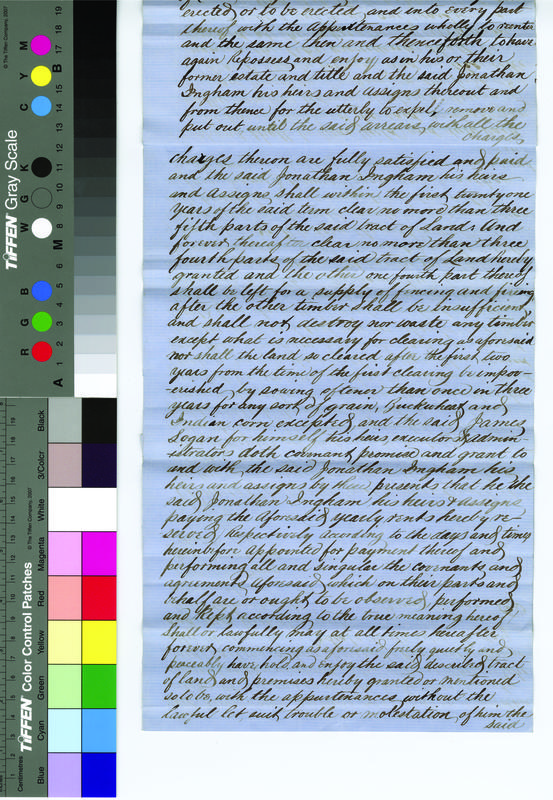 erected or to be erected and into every part
thereof with the Appurtenances wholly to reenter
and the same then and thenceforth to have
again Repossess and enjoy as in his or their
former estate and title and the said Jonathan
Ingham his heirs and assigns thereout and
from thence for the utterly to expel, remove and
put out until the said arrears, with all the
Charges,
charges thereon are fully satisfied and paid
and the said Jonathan Ingham his heirs
and assigns shall within the first twenty one
Years of the said term clear no more than three
fifth parts of the said tract of Land. And
forever thereafter clear no more than three
fourth parts of the said tract of Land hereby
granted and the other one fourth part thereof
shall be left for a supply of fencing and firing
after the other timber shall be insufficient
and shall not destroy nor waste any timber
except what is necessary for clearing as aforesaid
nor shall the land so cleared after the first two
years from the time of the first clearing be impov-
erished by sowing oftener than once in three
years for any sort of grain, Buckwheat and
Indian corn excepted and the said James
Logan for himself his heirs executors & admin-
istrators doth covenant promise and grant to
and with the said Jonathan Ingham his
heirs and assigns by these presents that he the
said Jonathan Ingham his heirs & assigns
paying the aforesaid yearly rents hereby re-
served Respectively according to the days and times
hereinbefore appointed for payment thereof and
performing all and singular the covenants and
agreements aforesaid which on their parts and
behalf are or ought to be observed, performed
and Kept according to the true meaning hereof
shall or lawfully may at all times hereafter
forever commencing as aforesaid freely quietly and
peaceably have, hold, and enjoy the said described tract
of land and premises hereby granted or mentioned
so to be, with the appurtenances without the
lawful let, suit, trouble or molestation of him the
said
© The Tiffen Company, 2007
TIFFEN Gray Scale
R G B W G K C Y M
A 1 2 3 4 5 6 M 8 9 10 11 12 13 14 15 B 17 18 19
TIFFEN Color Control Patches
© The Tiffen Company, 2007
Centimetres
Blue Cyan Green Yellow Red Magenta White 3/Color Black